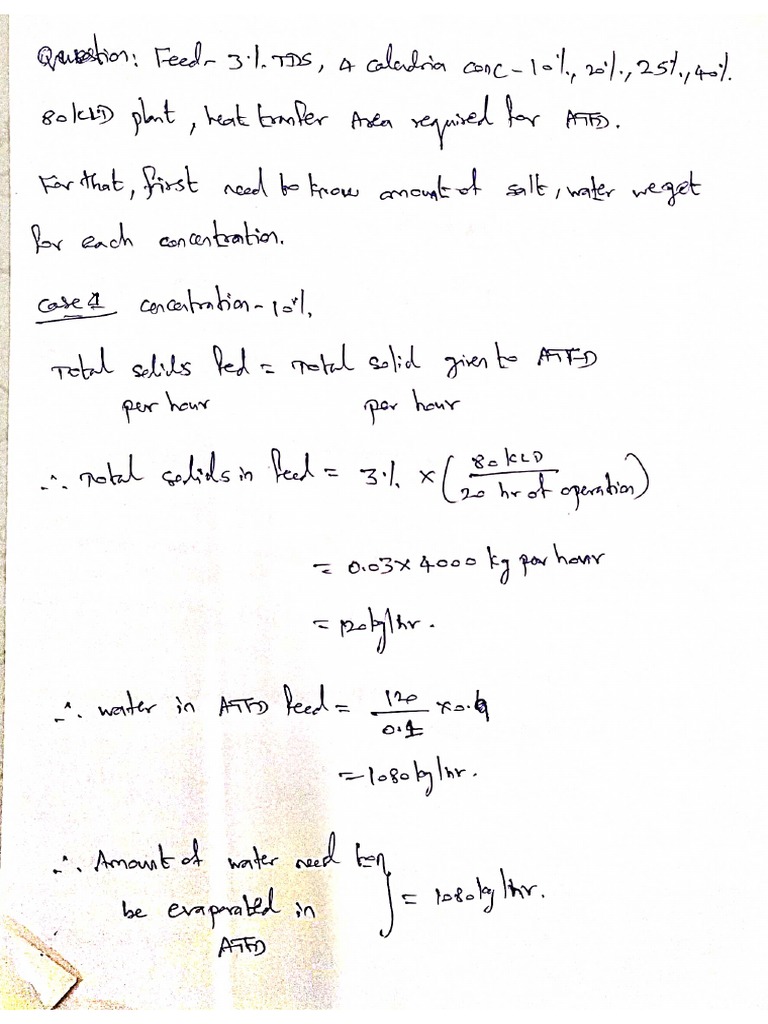 Question: Feed - 3% TDS, 4 calandria conc - 10%, 20%, 25%, 40%.
80 KLD plant, heat transfer Area required for ATFD.
For that, first need to know amount of salt, water we get
for each concentration.
Case 1 concentration - 10%,
Total solids fed = Total solid given to ATFD
per hour per hour
∴ Total solids in feed = 3% × (80 KLD / 20 hr of operation)
= 0.03 × 4000 kg per hour
= 120 kg/hr.
∴ water in ATFD feed = 120 / 0.1 × 0.9
= 1080 kg/hr.
∴ Amount of water need
be evaporated in } = 1080 kg/hr.
ATFD